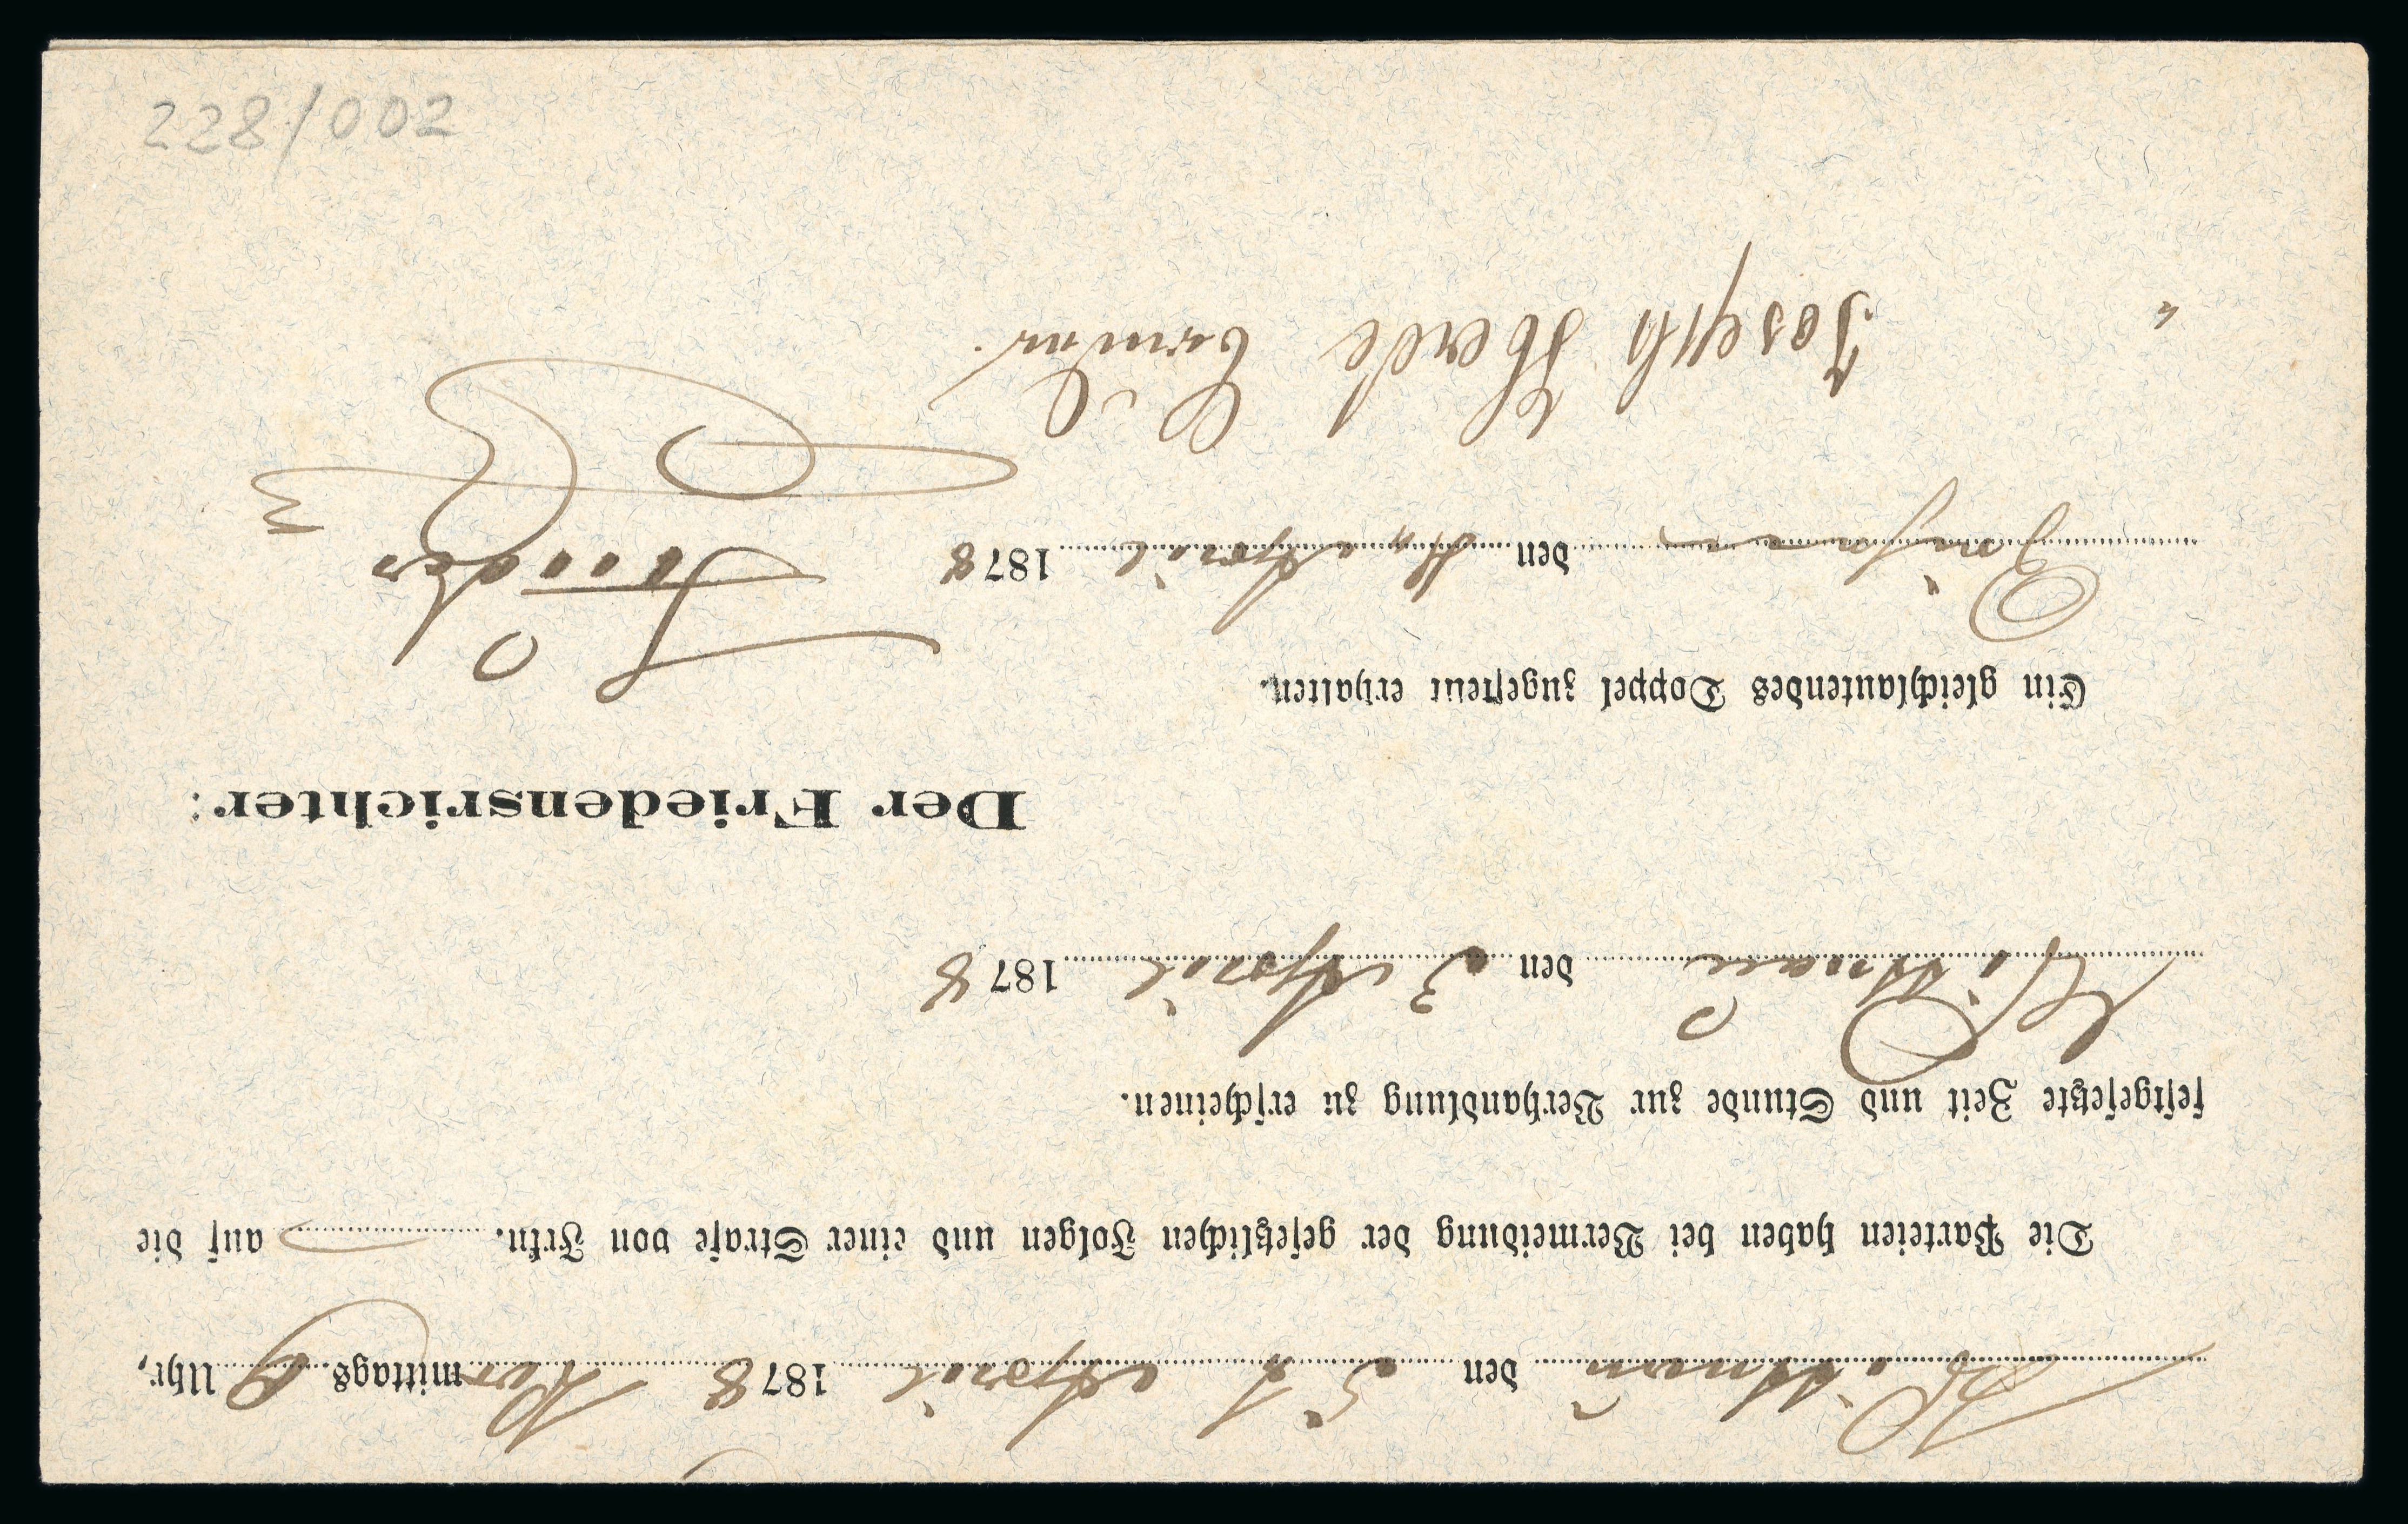 den 5 t April 1878 Vor mittags. 9 Uhr,
Die Parteien haben bei Vermeidung der gesetzlichen Folgen und einer Strafe von Frkn. auf die
festgesetzte Zeit und Stunde zur Verhandlung zu erscheinen.
den 3 April 1878
Der Friedensrichter:
Ein gleichlautendes Doppel zugestellt erhalten.
den April 1878
Joseph
228/002